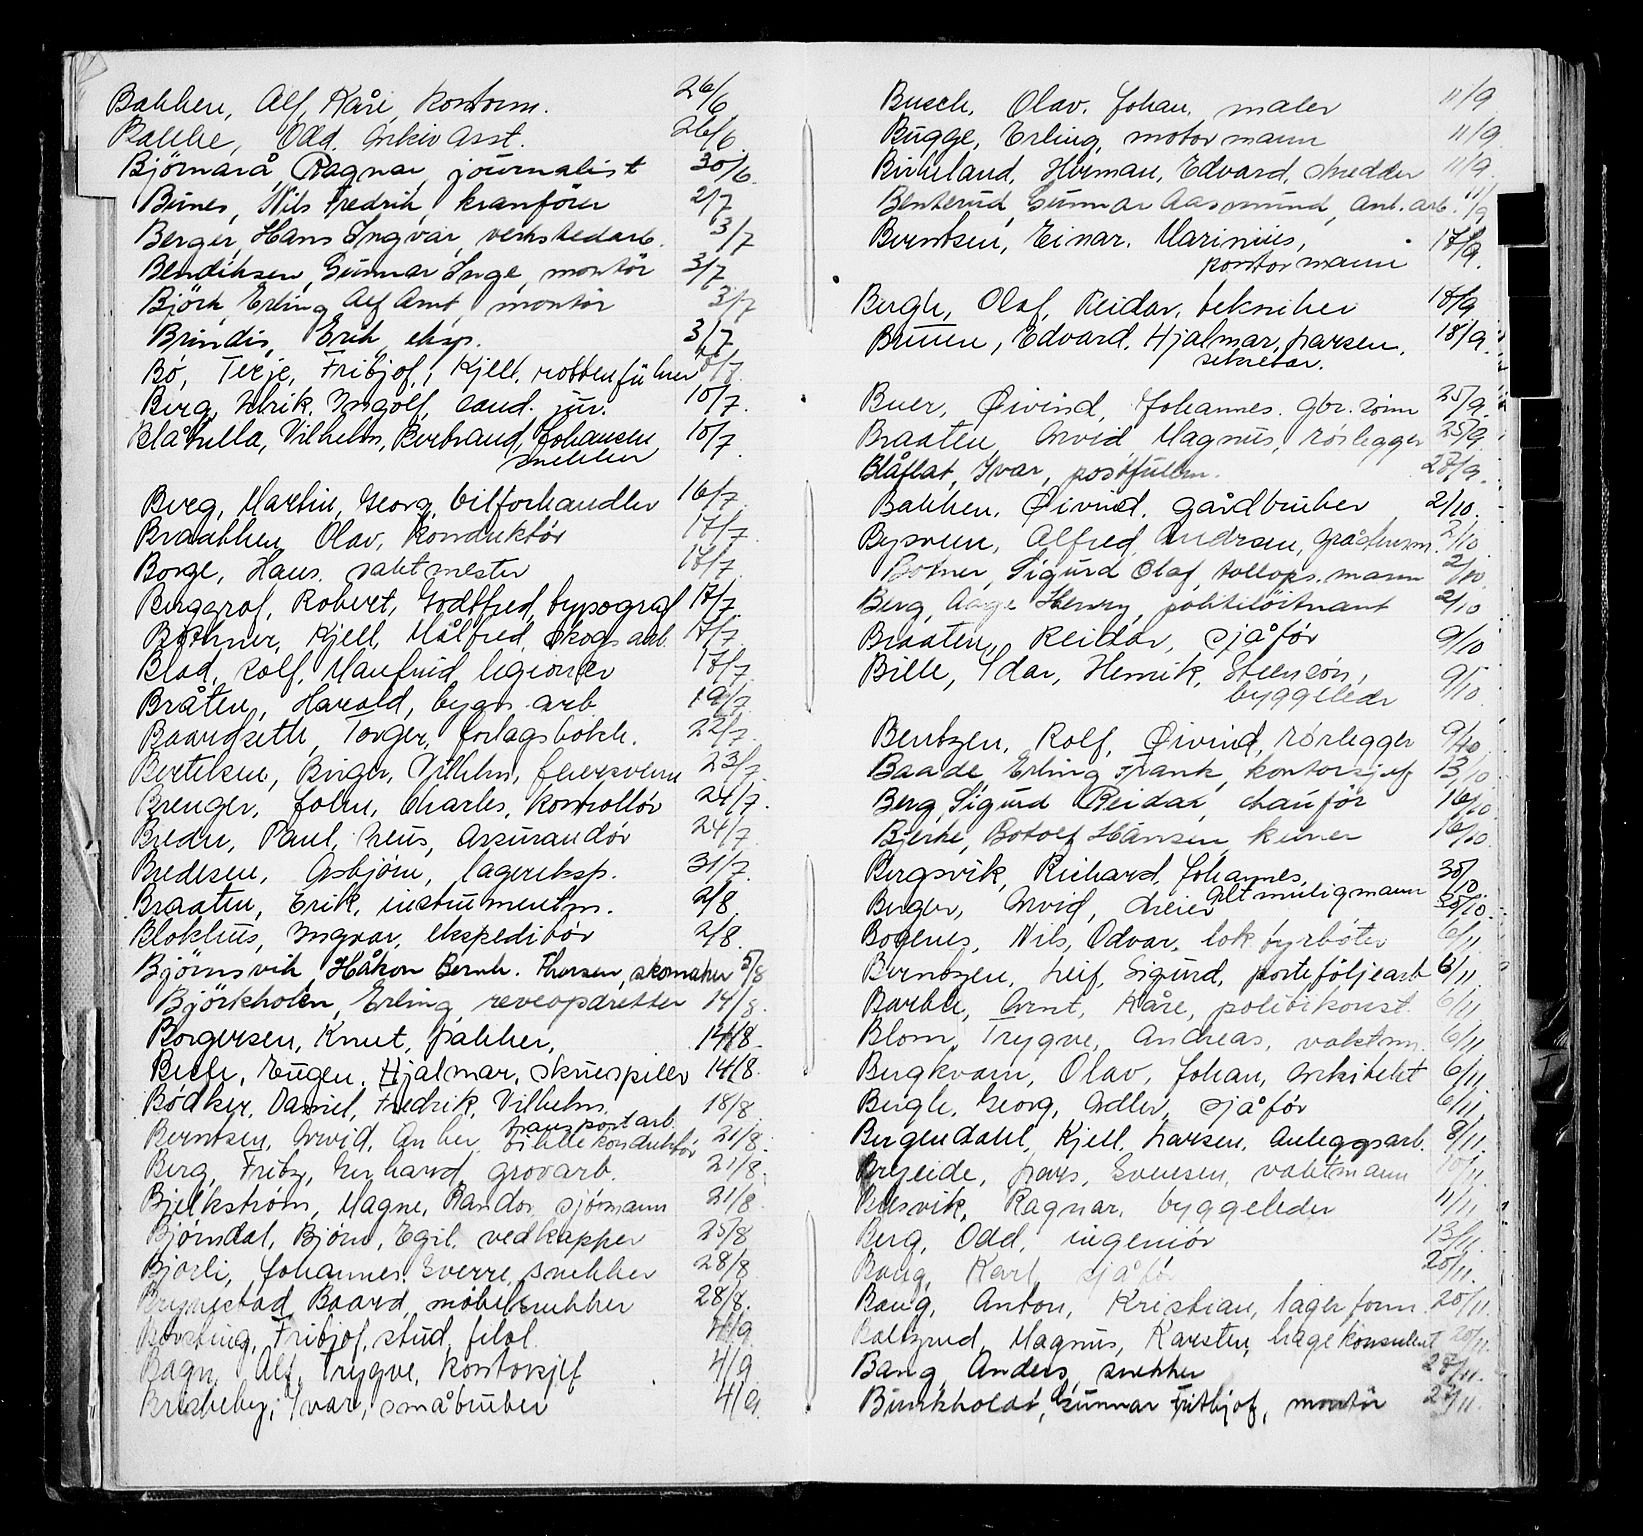 Bakken, Alf, Kåre, kontorm. 26/6
Bakke, Odd, Arkiv Asst. 26/6
Björnarå Ragnar, journalist 30/6.
Nils Fredrik, kranförer 2/7
Berger, Hans Ingvar, verkstedarb. 3/7
Bendiksen, Gunnar Inge, montör 3/7
Björk, Erling Alf Arnt, montör 3/7
Brindis, Erik, eksp. 3/7
Bö, Terje, Fritjof, Kjell, rottenführer /7
Berg, Ulrik, Ingolf, cand. jur. 10/7.
Blåkilla, Vilhelm, Johansen 10/7.
snekker
Berg, Martin, Georg, bilforhandler 16/7.
Braathen, Olav, konduktör 17/7.
Borge, Hans, vaktmester 17/7.
Berggraf, Robert, Godtfred, typograf 17/7
Bothner, Kjell, Målfred, skogsarb. 17/7.
Blad, Rolf, Manfred, legionær 17/7
Bråten, Harald, bygn. arb 19/7
Baardseth, Torger, forlagsbokh. 22/7.
Bertelsen, Birger, Vilhelm, feiersvenn 23/7.
Brenger, John, Charles, kontrollör 24/7.
Breder, Paul, Zeus, Assurandör 24/7.
Bredesen, Asbjörn, lagereksp. 31/7.
Braaten, Erik, instrumentm. 2/8.
Blokhus, Ingvar, ekspeditör 2/8.
Björnsvik, Håkon Bernh. Thorsen, skomaker 5/8
Björkholen, Erling, reveopdretter 14/8.
Borgersen, Knut, pakker, 14/8.
Bech, Eugen, Hjalmar, skuespiller 14/8.
Bödker, Daniel, Fredrik, Vilhelm. 18/8.
transportarb.
Berntsen, Arvid, Anker, konduktör 21/8.
Berg, Fritz, Gerhard, grovarb. 21/8.
Bjelkström, Magne, Randor, sjömann 21/8.
Bjørndal, Bjørn, Egil, vedkapper 25/8
Bjørli, Johannes, Sverre, snekker 28/8
Brynestad, Baard, møbelsnekker 28/8.
Borsting, Fritjof, stud. filol. 4/9.
Bagn, Alf, Trygve, kontorsjef 4/9.
Briskeby, Ivar, småbruker 4/9.
Busch, Olav, Johan, maler 11/9
Bugge, Erling, motormann 11/9.
Birkeland, Herman, Edvard, skredder 11/9.
Benterud, Gunnar Aasmund, anl. arb. 11/9
Berntsen, Einar, Marinius, 17/9.
kontormann
Bergh, Olaf, Reidar, tekniker 18/9
Bruun, Edvard, Hjalmar, Larsen, 18/9.
sekretær.
Buer, Øivind, Johannes, gbr. sönn 25/9.
Braaten, Arvid Magnus, rörlegger 25/9.
Blåflat, Ivar, postfullm. 28/9.
Bakken, Øivind, gårdbruker 2/10.
Bysveen, Alfred, Andrsen, gråstensm. 2/10
Botner, Sigurd Olaf, tollops.mann 2/10.
Berg, Aage Henry, politilöitnant 2/10
Braaten, Reidar, sjåför 9/10
Bille, Idar, Henrik, Steensön, 9/10.
byggeleder
Bentzen, Rolf, Øivind, rörlegger 9/10
Baade, Erling Frank, kontorsjef 13/10.
Berg, Sigurd Reidar, chauför 16/10.
Bjerke, Botolf Hansen, kelner 16/10.
Bergsvik, Richard, Johannes, 30/10.
altmuligmann
Berger, Arvid, dreier 30/10.
Bogenes, Nils, Odvar, lok. fyrböter 6/11.
Berntzen, Leif, Sigurd, porteföljearb 6/11.
Barbu, Arnt, Kåre, politikonst. 6/11.
Blom, Trygve, Andreas, vaktm. 6/11
Bergkvam, Olav, Johan, Arkitekt 6/11.
Bergh, Georg, Adler, sjåför 6/11.
Bergendahl, Kjell, Larsen, Anleggsarb. 8/11.
Bryeide, Lars, Evensen, vaktmann 10/11.
Ragnar, byggeleder 11/11.
Berg, Odd, ingeniör 13/11.
Karl, sjåför 20/11.
Baug, Anton, Kristian, lagerform. 20/11.
Baltzrud, Magnus, Karsten, hagekonsulent 20/11.
Bang, Anders, snekker 27/11.
Burkholdt, Gunnar Fritkjof, montör 27/11.